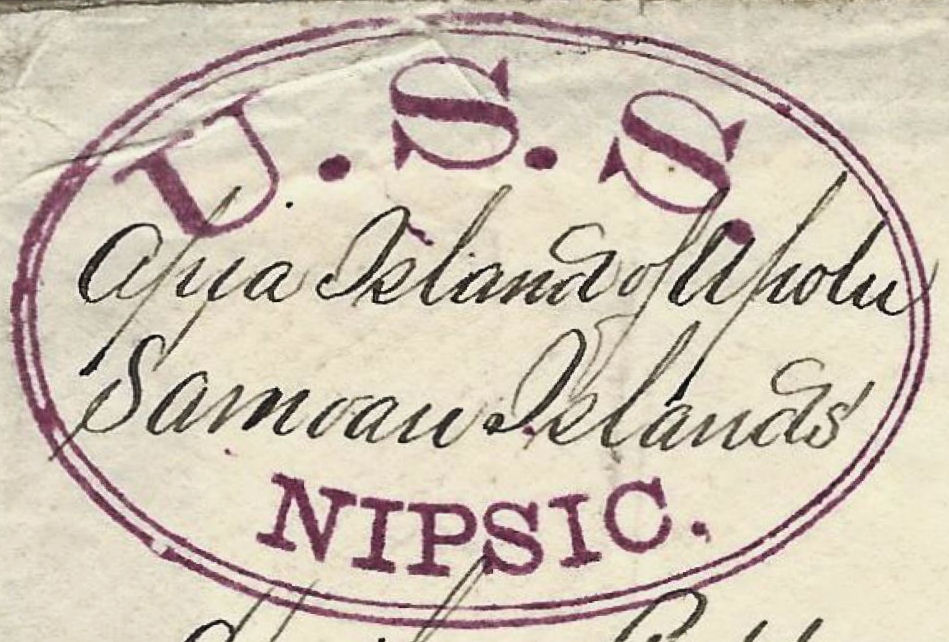 U.S.S.
Apia Island of Upolu
Samoan Islands
NIPSIC.